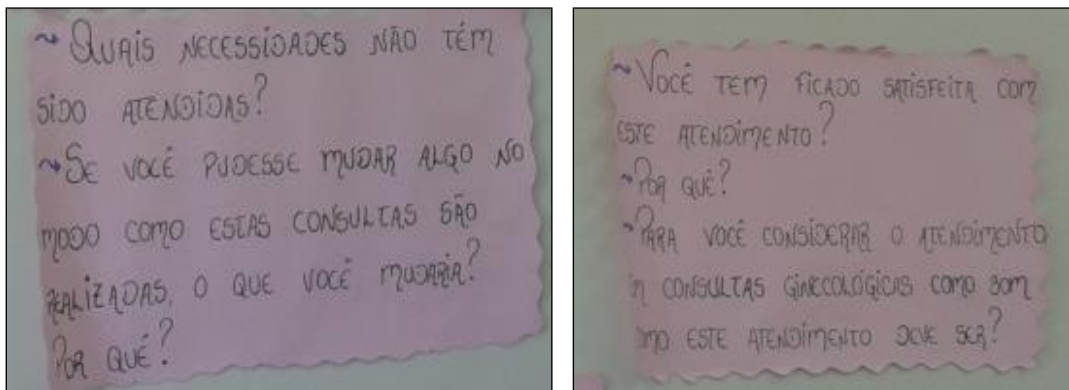 ~ Quais necessidades não têm
sido atendidas?
~ Se você pudesse mudar algo no
modo como estas consultas são
realizadas, o que você mudaria?
Por quê?
~ Você tem ficado satisfeita com
este atendimento?
~ Por quê?
~ Para você considerar o atendimento
em consultas ginecológicas como bom
como este atendimento deve ser?